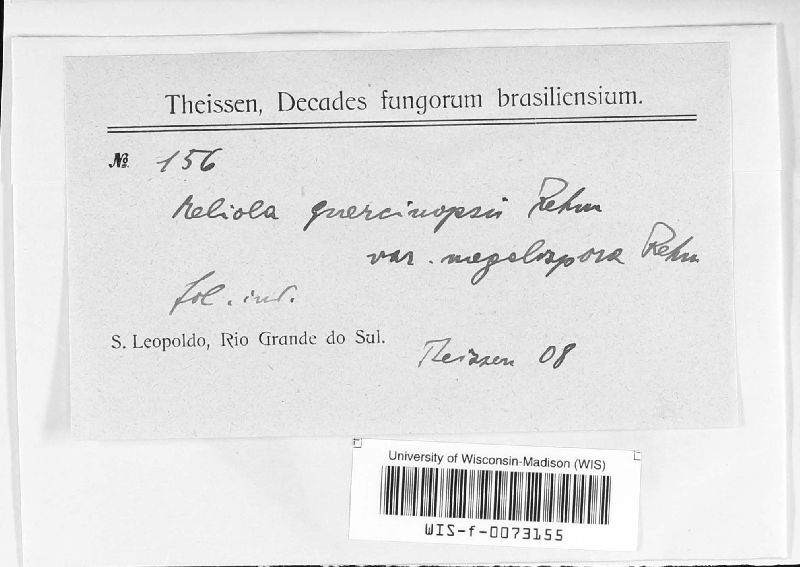 Theissen, Decades fungorum brasiliensium.
№ 156
Meliola quercinopsis Rehm
var. megalospora Rehm
fol. ind.
S. Leopoldo, Rio Grande do Sul.
Theissen 08
University of Wisconsin-Madison (WIS)
WIS-f-0073155